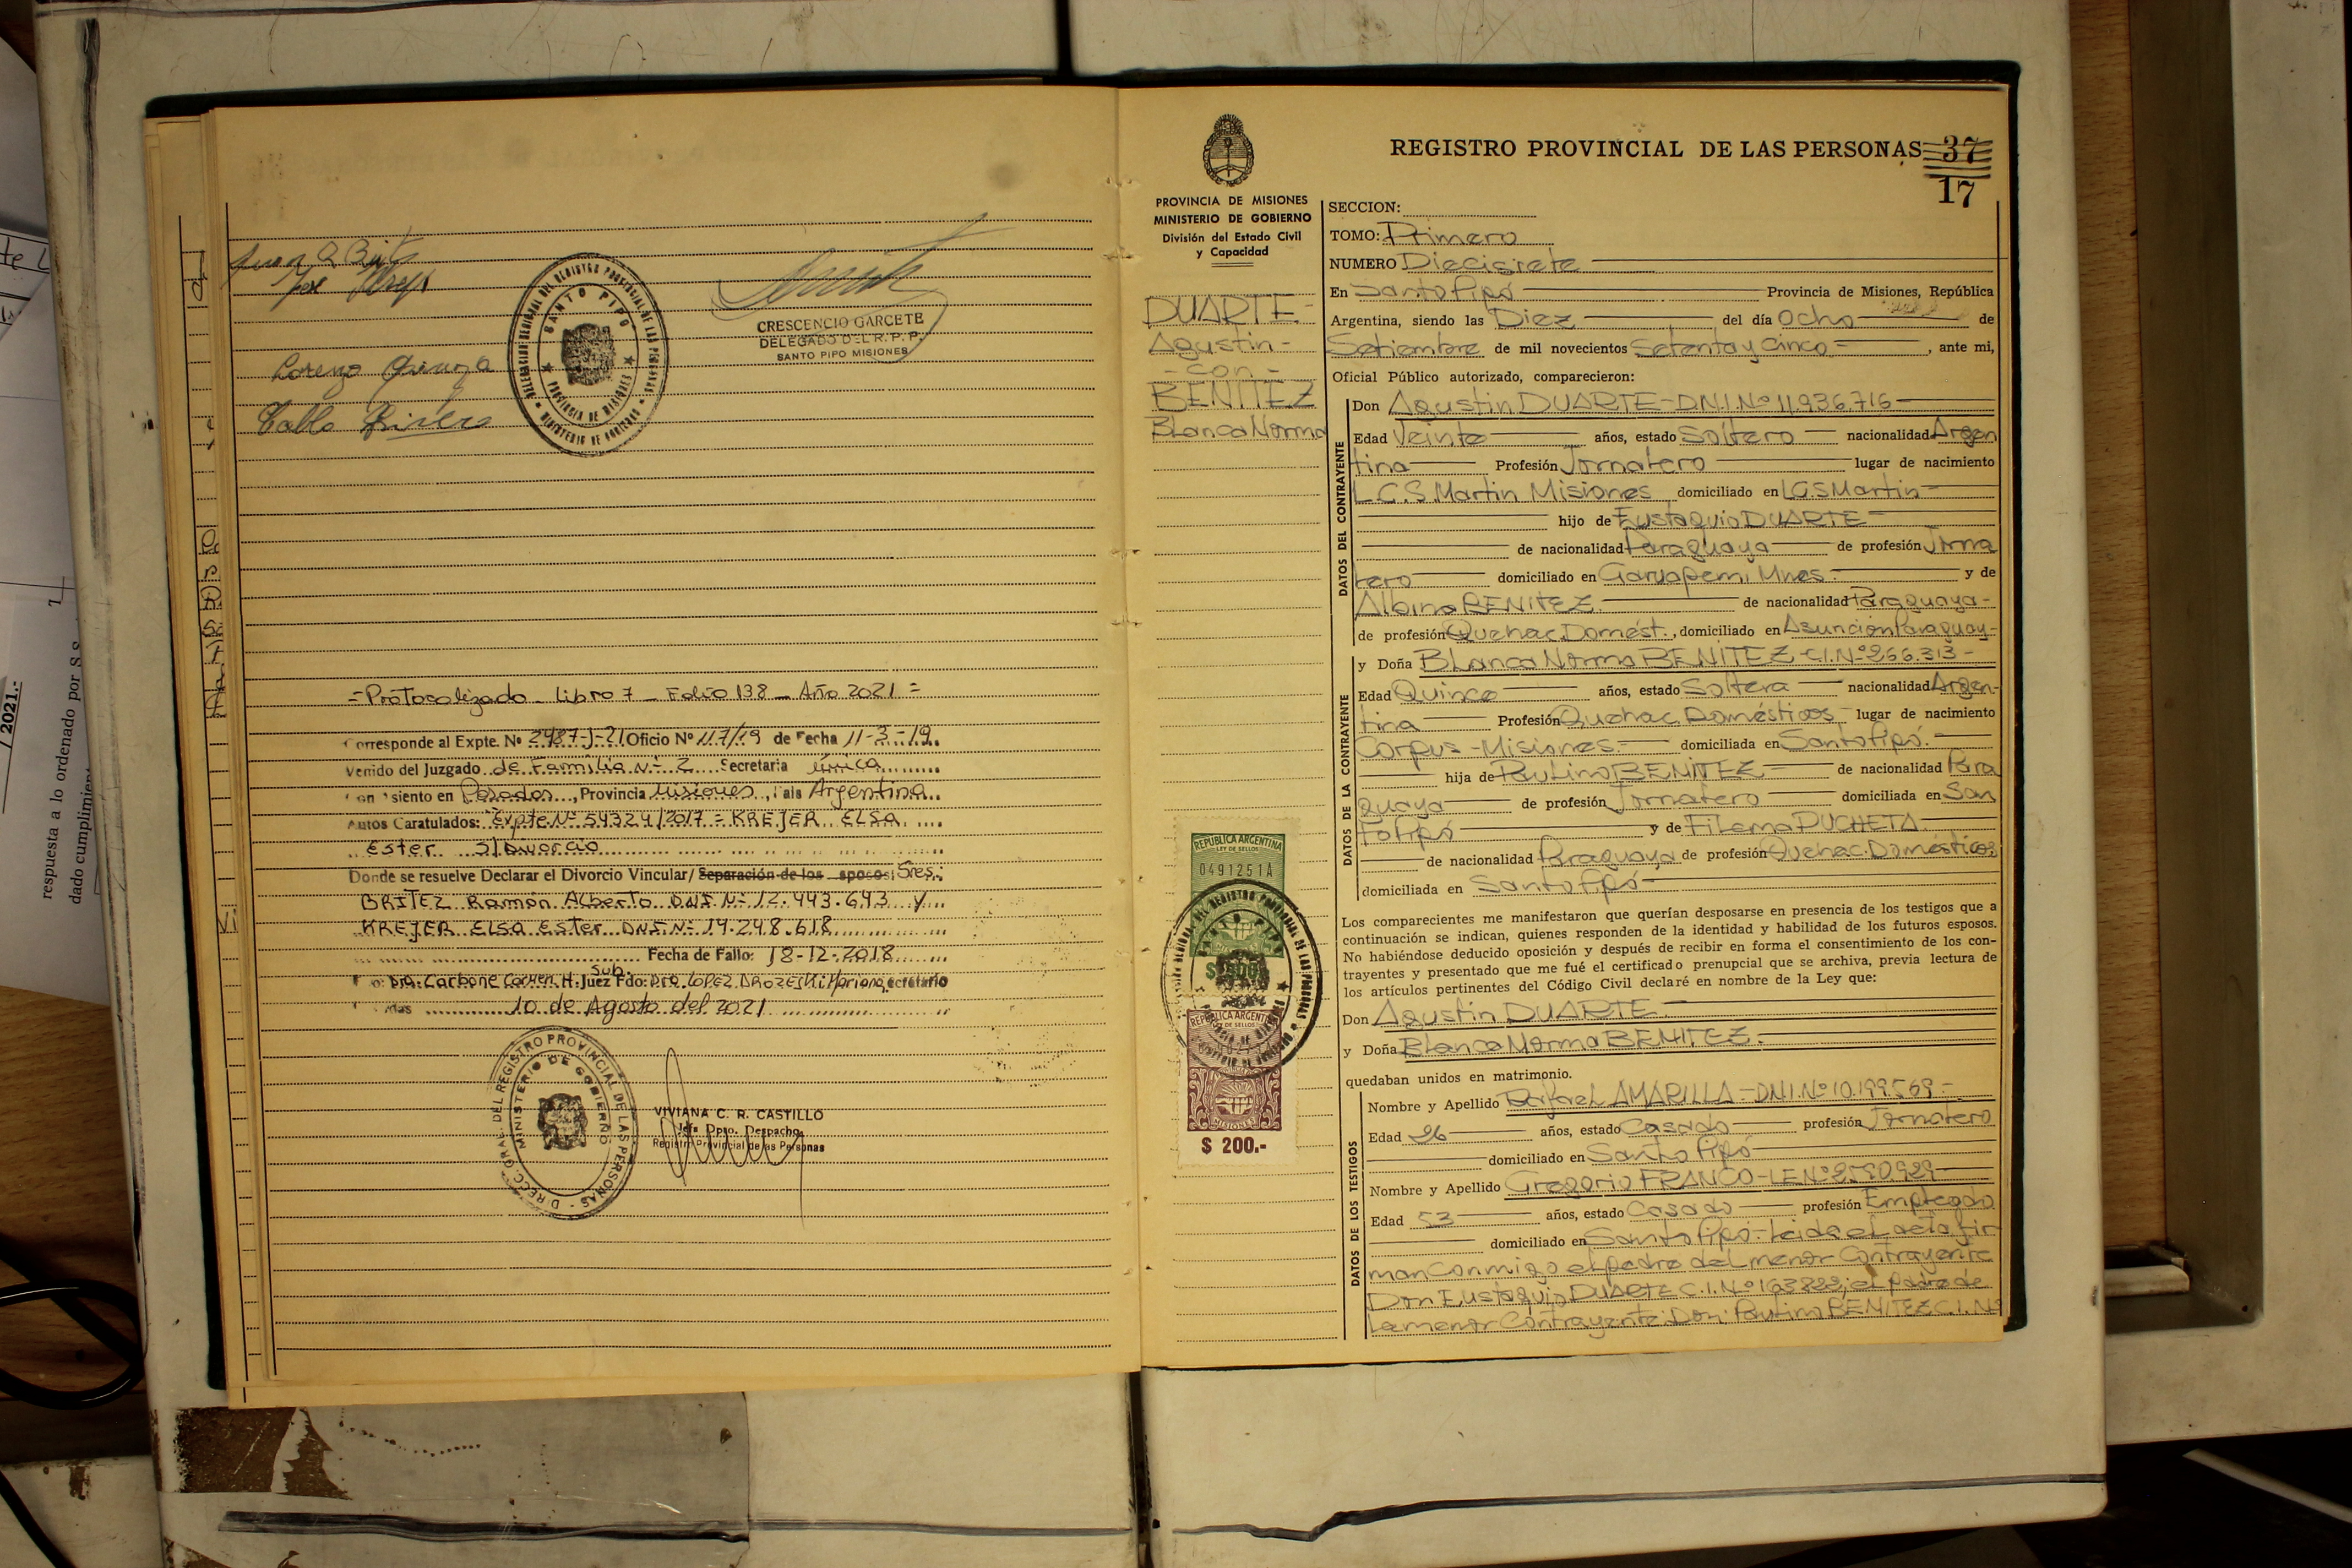 Lorenzo
CRESCENCIO GARCETE
DELEGADO DEL R. P. P.
SANTO PIPO MISIONES
SANTO PIPO
PROVINCIA DE MISIONES
MINISTERIO DE GOBIERNO
= Protocolizado _ Libro 7 _ Folio 138 _ Año 2021 =
Corresponde al Expte. Nº 2987-J-21 Oficio Nº 117/19 de Fecha 11-3-19
Venido del Juzgado de Familia Nº 2 Secretaria única
siento en Posadas, Provincia Misiones, Argentina
Autos Caratulados: Expte Nº 54324/2017 = KREJER ELSA
Ester S/Divorcio
Donde se resuelve Declarar el Divorcio Vincular/ Separación de los esposos: Sres.:
BRITEZ Ramón Alberto DNI Nº 12.443.643 y
KREJER ELSA Ester DNI Nº 14.248.618
Fecha de Fallo: 18-12-2018
Dra: Carbone Carmen H. Juez Sub. Fdo: Dra. LOPEZ Mariana
10 de Agosto del 2021
DIRECC. GRAL. DEL REGISTRO PROVINCIAL DE LAS PERSONAS
MINISTERIO DE GOBIERNO
VIVIANA C. R. CASTILLO
Jefa Dpto. Despacho
Registro Provincial de las Personas
/ 2021.-
respuesta a lo ordenado por S.S.
dado cumplimien
REGISTRO PROVINCIAL DE LAS PERSONAS 37
17
PROVINCIA DE MISIONES
MINISTERIO DE GOBIERNO
División del Estado Civil
y Capacidad
DUARTE-
Agustin-
-con-
BENITEZ
Blanca Norma
REPUBLICA ARGENTINA
LEY DE SELLOS
0491251A
REPUBLICA ARGENTINA
LEY DE SELLOS
MISIONES
$ 200.-
SECCION:
TOMO: Primero
NUMERO Diecisiete
En Santo Pipó Provincia de Misiones, República
Argentina, siendo las Diez del día Ocho de
Setiembre de mil novecientos Setenta y Cinco, ante mi,
Oficial Público autorizado, comparecieron:
DATOS DEL CONTRAYENTE
Don Agustin DUARTE-D.N.I.Nº 11.936.716
Edad Veinte años, estado Soltero nacionalidad Argen
tina Profesión Jornalero lugar de nacimiento
L.G.S. Martin Misiones domiciliado en L.G.S Martin
hijo de Eustaquio DUARTE
de nacionalidad Paraguaya de profesión Jorna
lero domiciliado en Garuapemi Mnes. y de
Albina BENITEZ. de nacionalidad Paraguaya-
de profesión Quehac.Domést., domiciliado en Asuncion Paraguay-
DATOS DE LA CONTRAYENTE
y Doña Blanca Norma BENITEZ-C.I.Nº 266.313-
Edad Quince años, estado Soltera nacionalidad Argen-
tina Profesión Quehac.Domésticos lugar de nacimiento
Corpus-Misiones. domiciliada en Santo Pipó.
hija de Paulino BENITEZ de nacionalidad Para
guaya de profesión Jornalero domiciliada en San
to Pipó y de Filema PUCHETA.
de nacionalidad Paraguaya de profesión Quehac.Domésticos
domiciliada en Santo Pipó
Los comparecientes me manifestaron que querían desposarse en presencia de los testigos que a
continuación se indican, quienes responden de la identidad y habilidad de los futuros esposos.
No habiéndose deducido oposición y después de recibir en forma el consentimiento de los con-
trayentes y presentado que me fué el certificado prenupcial que se archiva, previa lectura de
los artículos pertinentes del Código Civil declaré en nombre de la Ley que:
Don Agustin DUARTE.
y Doña Blanca Norma BENITEZ.
quedaban unidos en matrimonio.
DATOS DE LOS TESTIGOS
Nombre y Apellido Rafael AMARILLA-DNI.Nº 10.199.569.-
Edad 26 años, estado Casado profesión Jornalero
domiciliado en Santo Pipó
Nombre y Apellido Gregorio FRANCO-LE.Nº 2590929
Edad 53 años, estado Casado profesión Empleado
domiciliado en Santo Pipó-Leida el acta fir
man conmigo el padre del menor Contrayente
Don Eustaquio DUARTE C.I.Nº 163882; el padre de
la menor Contrayente: Don: Paulino BENITEZ C.I.Nº